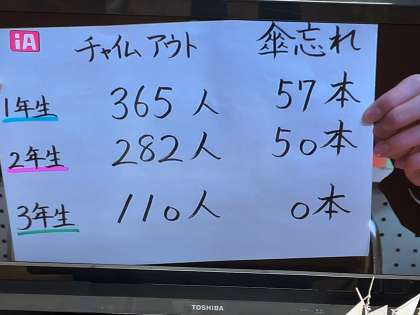 iA
チャイムアウト 傘忘れ
1年生 365人 57本
2年生 282人 50本
3年生 110人 0本
TOSHIBA